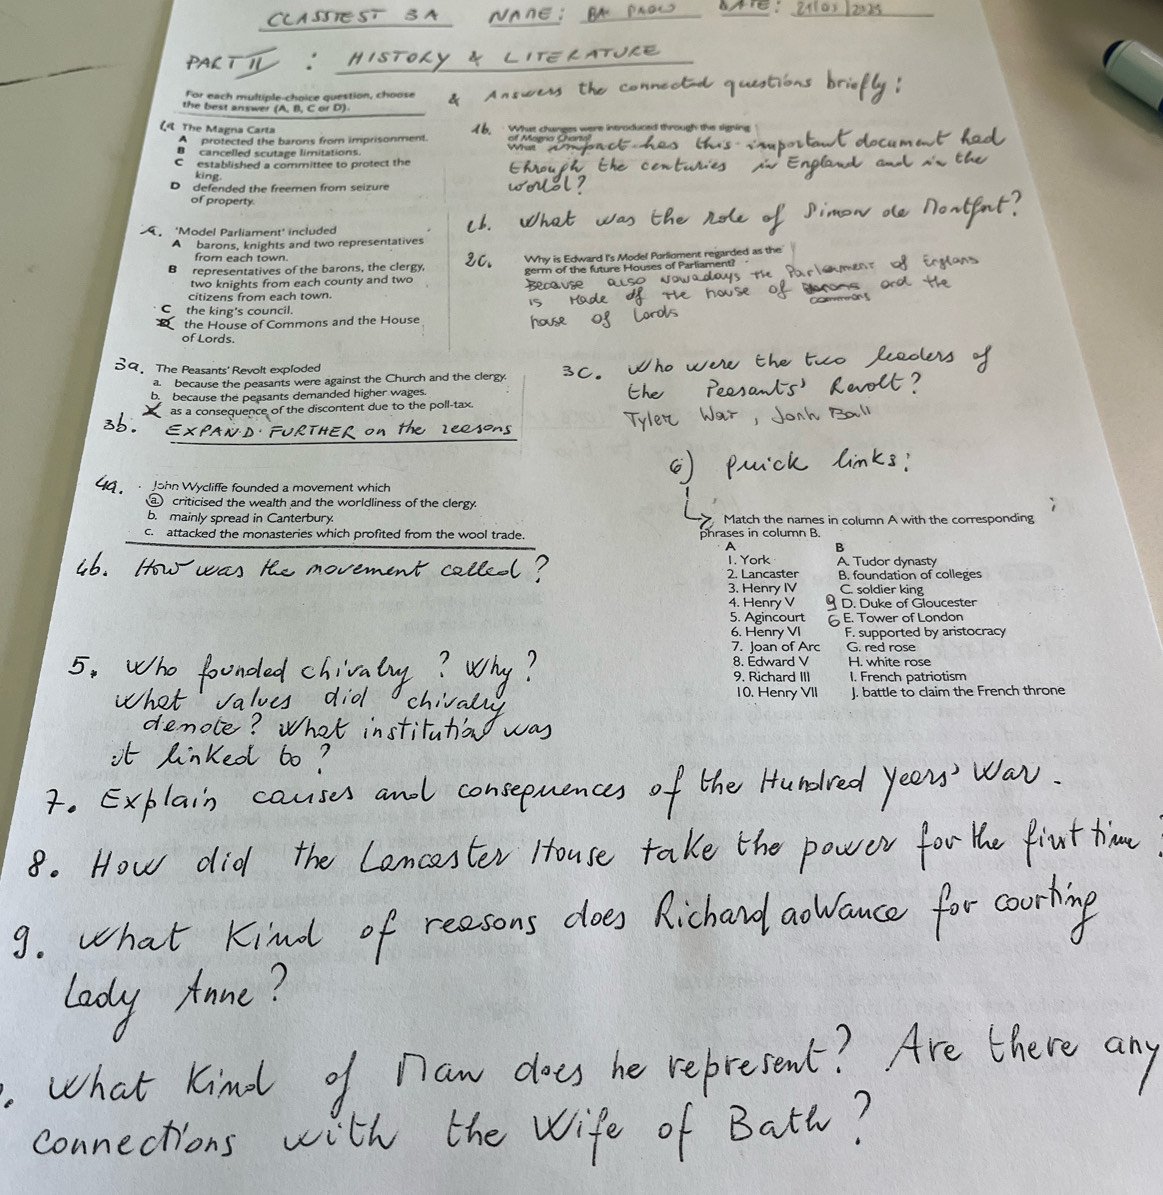 CLASSTEST 3A NAME: DATE: 21/03/2025
PART II : HISTORY & LITERATURE
For each multiple-choice question, choose
the best answer (A, B, C or D).
& Answers the connected questions briefly:
1a The Magna Carta
A protected the barons from imprisonment.
B cancelled scutage limitations.
C established a committee to protect the
king.
D defended the freemen from seizure
of property.
1b. What changes were introduced through the signing
of Magna Charta?
What impact has this important document had
through the centuries in England and in the
world?
'Model Parliament' included
A barons, knights and two representatives
from each town.
B representatives of the barons, the clergy,
two knights from each county and two
citizens from each town.
C the king's council.
D the House of Commons and the House
of Lords.
2b. What was the role of Simon de Montfort?
2c. Why is Edward I's Model Parliament regarded as the
germ of the future Houses of Parliament?
Because also nowadays the Parlament of Englans
is made of the house of commons and the
house of Lords
3a. The Peasants' Revolt exploded
a. because the peasants were against the Church and the clergy.
b. because the peasants demanded higher wages.
as a consequence of the discontent due to the poll-tax.
3b. EXPAND FURTHER on the reasons
3c. Who were the two leaders of
the Peasants' Revolt?
Tyler War, Jonh Ball
4a. John Wycliffe founded a movement which
a. criticised the wealth and the worldliness of the clergy.
b. mainly spread in Canterbury.
c. attacked the monasteries which profited from the wool trade.
4b. How was the movement called?
5. Who founded chivalry? Why?
What values did chivalry
denote? What institution was
it linked to?
6) Quick links:
Match the names in column A with the corresponding
phrases in column B.
A B
1. York A. Tudor dynasty
2. Lancaster B. foundation of colleges
3. Henry IV C. soldier king
4. Henry V 9 D. Duke of Gloucester
5. Agincourt 6 E. Tower of London
6. Henry VI F. supported by aristocracy
7. Joan of Arc G. red rose
8. Edward V H. white rose
9. Richard III I. French patriotism
10. Henry VII J. battle to claim the French throne
7. Explain causes and consequences of the Hundred Years' War.
8. How did the Lancaster House take the power for the first time?
9. What Kind of reasons does Richard advance for courting
Lady Anne?
What Kind of Man does he represent? Are there any
connections with the Wife of Bath?